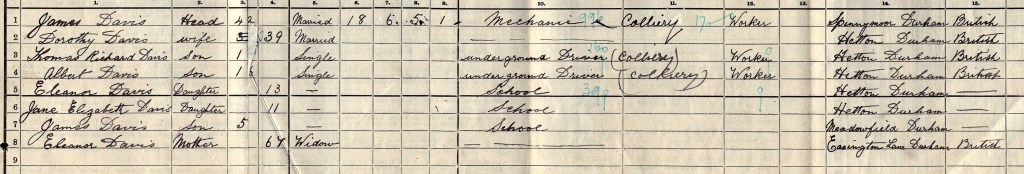 1. 2. 3. 4. 5. 6. 7. 8. 9. 10. 11. 12. 13. 14. 15.
1 James Davis Head 42 Married 18 6 5 1 Mechanic Colliery Worker Spennymoor Durham British
2 Dorothy Davis wife 39 Married — Hetton Durham British
3 Thomas Richard Davis son Single underground Driver (Colliery) Worker Hetton Durham British
4 Albert Davis son Single underground Driver (Colliery) Worker Hetton Durham British
5 Eleanor Davis Daughter 13 — School Hetton Durham —
6 Jane Elizabeth Davis Daughter 11 — School Hetton Durham —
7 James Davis son 5 — School Meadowfield Durham —
8 Eleanor Davis Mother 64 Widow — Easington Lane Durham British
9